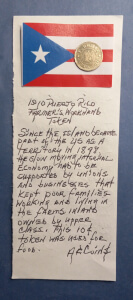 1910 PUERTO RICO
FARMER'S WORKHAND
TOKEN
SINCE THE ISLAND BECAME
PART OF THE US AS A
TERRITORY IN 1898
MOVING INTERNAL
ECONOMY HAD TO BE
SUPPORTED BY UNIONS
AND BUSINESSES THAT
KEPT POOR FAMILIES
WORKING AND LIVING IN
THE FARMS ISLAND
OWNED BY UPPER
CLASS. THIS 10¢
TOKEN WAS USED FOR
FOOD.